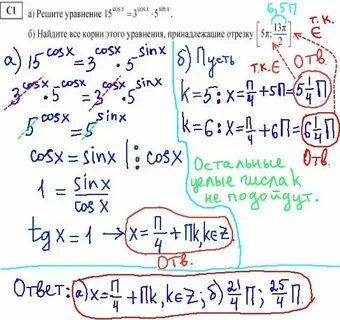 6,5П
C1
а) Решите уравнение 15^cosx = 3^cosx · 5^sinx.
т.к. ∈
б) Найдите все корни этого уравнения, принадлежащие отрезку [5π; 13π/2]
а) 15^cosx = 3^cosx · 5^sinx
3^cosx · 5^cosx = 3^cosx · 5^sinx
5^cosx = 5^sinx
cosx = sinx |: cosx
1 = sinx/cosx
tgx = 1 → x = П/4 + Пk, k∈Z.
Отв.
б) Пусть
т.к. ∈
Отв.
k=5: x = П/4 + 5П = 5 1/4 П
k=6: x = П/4 + 6П = 6 1/4 П
Отв.
Остальные
целые числа k
не подойдут.
Ответ: а) x = П/4 + Пk, k∈Z, б) 21/4 П; 25/4 П.